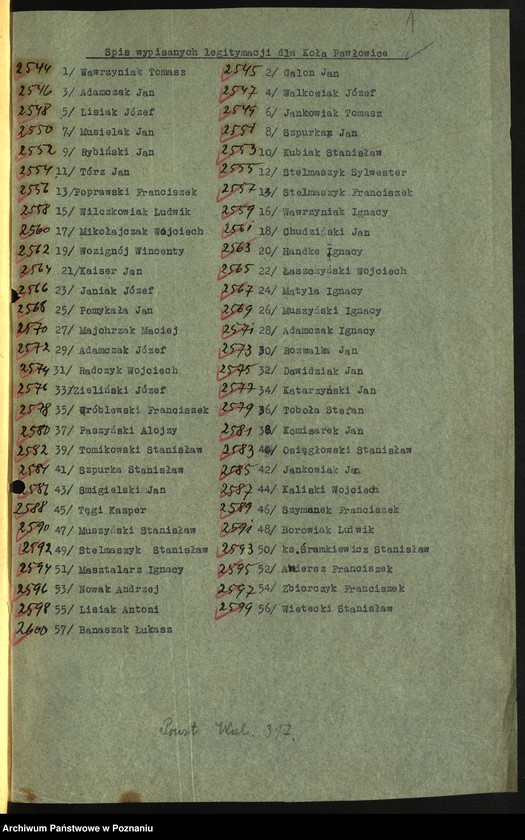 1
Spis wypisanych legitymacji dla Koła Pawłowice
2544 1/ Wawrzyniak Tomasz 2545 2/ Galon Jan
2546 3/ Adamczak Jan 2547 4/ Walkowiak Józef
2548 5/ Lisiak Józef 2549 6/ Jankowiak Tomasz
2550 7/ Musielak Jan 2551 8/ Szpurka Jan
2552 9/ Rybiński Jan 2553 10/ Kubiak Stanisław
2554 11/ Tórz Jan 2555 12/ Stelmaszyk Sylwester
2556 13/Poprawski Franciszek 2557 14/ Stelmaszyk Franciszek
2558 15/ Wilczkowiak Ludwik 2559 16/ Wawrzyniak Ignacy
2560 17/ Mikołajczak Wojciech 2561 18/ Chudziński Jan
2562 19/ Wozignój Wincenty 2563 20/ Handke Ignacy
2564 21/Kaiser Jan 2565 22/ Łaszczyński Wojciech
2566 23/ Janiak Józef 2567 24/ Matyla Ignacy
2568 25/ Pomykała Jan 2569 26/ Muszyński Ignacy
2570 27/ Majchrzak Maciej 2571 28/ Adamczak Ignacy
2572 29/ Adamczak Józef 2573 30/ Rozwalka Jan
2574 31/ Radczyk Wojciech 2575 32/ Dawidziak Jan
2576 33/Zieliński Józef 2577 34/ Katarzyński Jan
2578 35/ Wróblewski Franciszek 2579 36/ Toboła Stefan
2580 37/ Paszyński Alojzy 2581 38/ Komisarek Jan
2582 39/ Tomikowski Stanisław 2583 40/ Osięgłowski Stanisław
2584 41/ Szpurka Stanisław 2585 42/ Jankowiak Jan
2586 43/ Smigielski Jan 2587 44/ Kaliski Wojciech
2588 45/ Tęgi Kasper 2589 46/ Szymanek Franciszek
2590 47/ Muszyński Stanisław 2591 48/ Borowiak Ludwik
2592 49/ Stelmaszyk Stanisław 2593 50/ ks.Śramkiewicz Stanisław
2594 51/ Masztalarz Ignacy 2595 52/ Franciszek
2596 53/ Nowak Andrzej 2597 54/ Zbiorczyk Franciszek
2598 55/ Lisiak Antoni 2599 56/ Wietecki Stanisław
2600 57/ Banaszak Łukasz
Archiwum Państwowe w Poznaniu